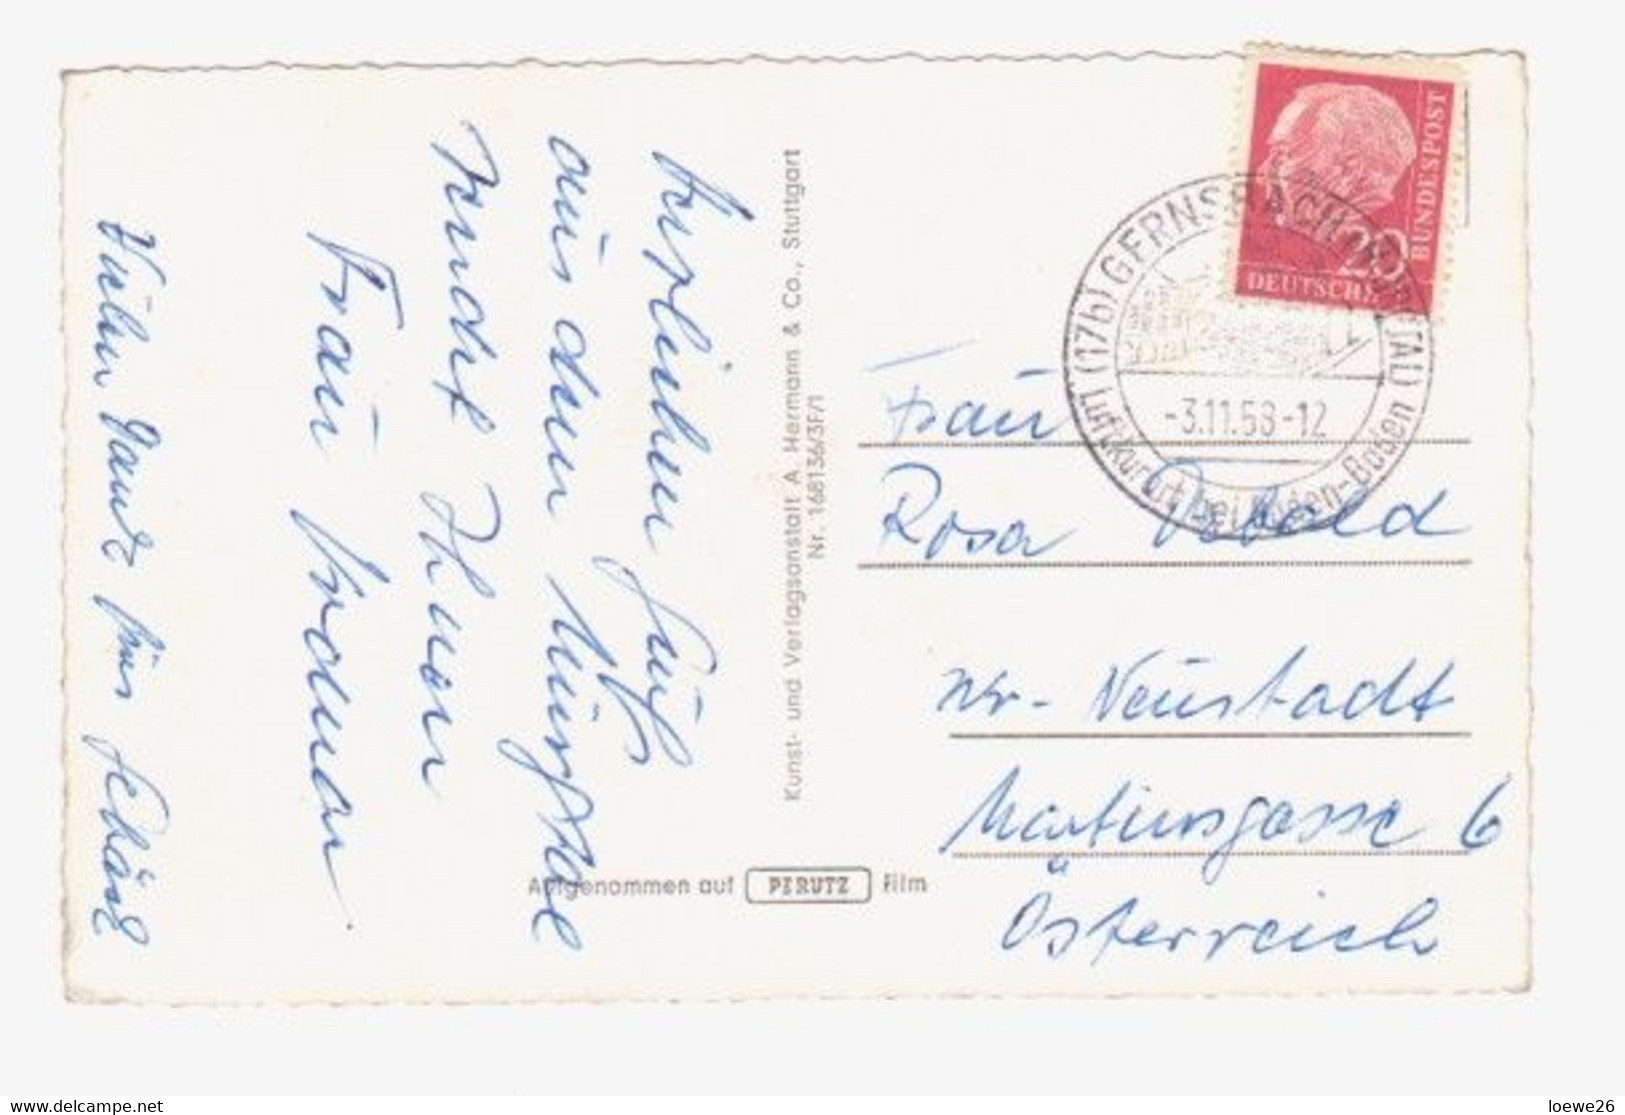 herzlichen Gruß
aus dem Murgtal
sendet Ihnen
Frau
Vielen Dank für
Kunst- und Verlagsanstalt A. Hermann & Co., Stuttgart
Nr. 168136/3F/1
Aufgenommen auf PERUTZ Film
DEUTSCHE BUNDESPOST
20
(17b) GERNSBACH (MURGTAL)
-3.11.58-12
Luftkurort bei Baden-Baden
Frau
Rosa
Wr. Neustadt
Martinsgasse 6
Österreich
www.delcampe.net
loewe26